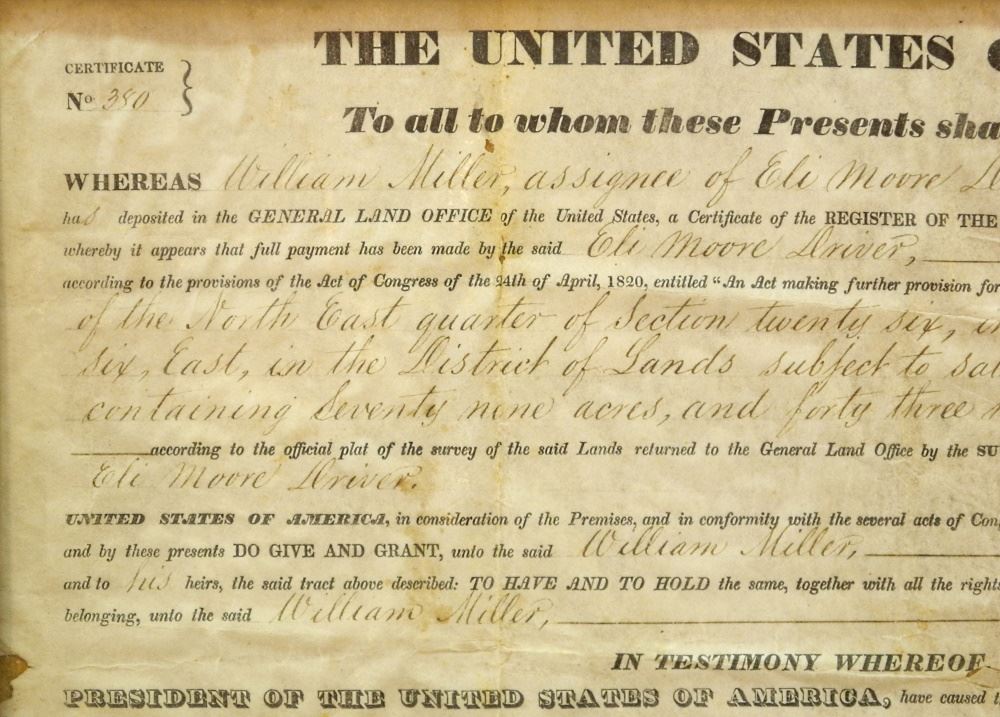 THE UNITED STATES
CERTIFICATE
No. 380
To all to whom these Presents sha
WHEREAS William Miller, assignee of Eli Moore
has deposited in the GENERAL LAND OFFICE of the United States, a Certificate of the REGISTER OF THE
whereby it appears that full payment has been made by the said Eli Moore Driver,
according to the provisions of the Act of Congress of the 24th of April, 1820, entitled "An Act making further provision for
of the North East quarter of Section twenty six, in
six, East, in the District of Lands subject to sal
containing Seventy nine acres, and forty three
according to the official plat of the survey of the said Lands returned to the General Land Office by the SU
Eli Moore Driver.
UNITED STATES OF AMERICA, in consideration of the Premises, and in conformity with the several acts of Con
and by these presents DO GIVE AND GRANT, unto the said William Miller,
and to his heirs, the said tract above described: TO HAVE AND TO HOLD the same, together with all the rights
belonging, unto the said William Miller,
IN TESTIMONY WHEREOF
PRESIDENT OF THE UNITED STATES OF AMERICA, have caused t